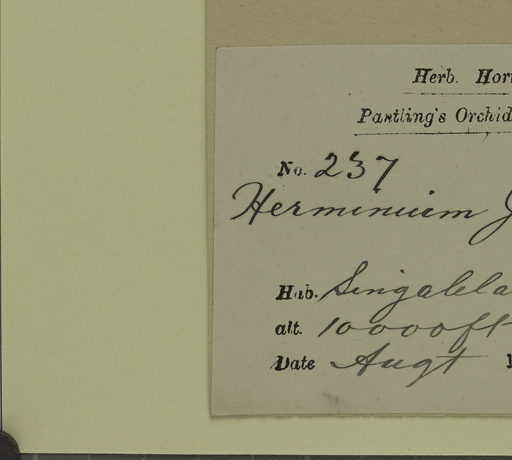 Herb. Hor
Pantling's Orchid
No. 237
Herminium J
Hab. Singalela
alt. 10000 ft
Date Augt 1